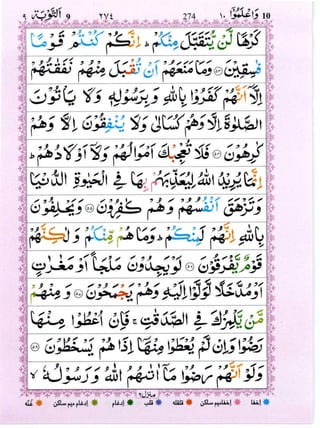 ١٠ وَاعْلَمُوْٓا 10 274 ٢٧٤ 9 اَلتَّوْبَة ٩
كَرْهًا لَّنْ يُّتَقَبَّلَ مِنْكُمْ ؕ اِنَّكُمْ كُنْتُمْ قَوْمًا
فٰسِقِيْنَ ﴿٥٣﴾ وَمَا مَنَعَهُمْ اَنْ تُقْبَلَ مِنْهُمْ نَفَقٰتُهُمْ
اِلَّآ اَنَّهُمْ كَفَرُوْا بِاللّٰهِ وَبِرَسُوْلِهٖ وَلَا يَاْتُوْنَ
الصَّلٰوةَ اِلَّا وَهُمْ كُسَالٰى وَلَا يُنْفِقُوْنَ اِلَّا وَهُمْ
كٰرِهُوْنَ ﴿٥٤﴾ فَلَا تُعْجِبْكَ اَمْوَالُهُمْ وَلَآ اَوْلَادُهُمْ ؕ
اِنَّمَا يُرِيْدُ اللّٰهُ لِيُعَذِّبَهُمْ بِهَا فِى الْحَيٰوةِ الدُّنْيَا
وَتَزْهَقَ اَنْفُسُهُمْ وَهُمْ كٰفِرُوْنَ ﴿٥٥﴾ وَيَحْلِفُوْنَ
بِاللّٰهِ اِنَّهُمْ لَمِنْكُمْ ؕ وَمَا هُمْ مِّنْكُمْ وَلٰكِنَّهُمْ
قَوْمٌ يَّفْرَقُوْنَ ﴿٥٦﴾ لَوْ يَجِدُوْنَ مَلْجَاً اَوْ مَغٰرٰتٍ
اَوْ مُدَّخَلًا لَّوَلَّوْا اِلَيْهِ وَهُمْ يَجْمَحُوْنَ ﴿٥٧﴾ وَمِنْهُمْ
مَّنْ يَّلْمِزُكَ فِى الصَّدَقٰتِ ۚ فَاِنْ اُعْطُوْا مِنْهَا
رَضُوْا وَاِنْ لَّمْ يُعْطَوْا مِنْهَآ اِذَا هُمْ يَسْخَطُوْنَ ﴿٥٨﴾
وَلَوْ اَنَّهُمْ رَضُوْا مَآ اٰتٰىهُمُ اللّٰهُ وَرَسُوْلُهٗ ۙ
منزل٢
إخفا إخفامیم ساکن قلقله قلب إدغام إدغام میم ساکن غنّه